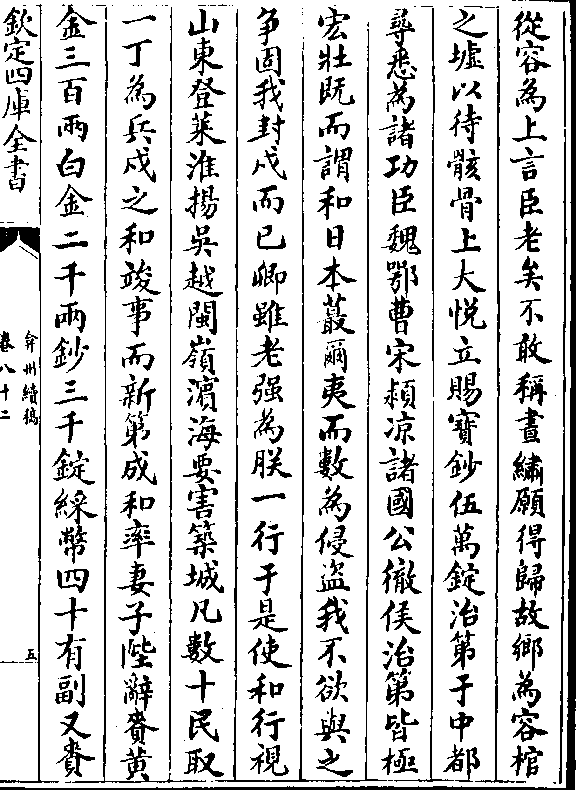 從容為上言臣老矣不敢稱晝繡願得歸故鄉為容棺
之墟以待骸骨上大悅立賜寳鈔伍萬錠治第于中都
尋悉為諸功臣魏鄂曹宋潁凉諸國公徹侯治第皆極
宏壯既而謂和日本蕞爾夷而數為侵盜我不欲與之
争固我封戍而已卿雖老强為朕一行于是使和行視
山東登萊淮揚吳越閩嶺濵海要害築城凡數十民取
一丁為兵戍之和竣事而新第成和率妻子陛辭賚黄
金三百兩白金二千兩鈔三千錠綵幣四十有副又賚
欽定四庫全書
弇州續稿
卷八十二
五